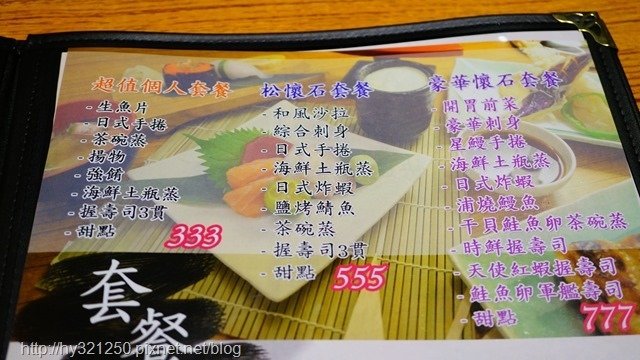 超值個人套餐
- 生魚片
- 日式手捲
- 茶碗蒸
- 揚物
- 強餚
- 海鮮土瓶蒸
- 握壽司3貫
- 甜點
333
松懷石套餐
- 和風沙拉
- 綜合刺身
- 日式手捲
- 海鮮土瓶蒸
- 日式炸蝦
- 鹽烤鯖魚
- 茶碗蒸
- 握壽司3貫
- 甜點
555
豪華懷石套餐
- 開胃前菜
- 豪華刺身
- 星鰻手捲
- 海鮮土瓶蒸
- 日式炸蝦
- 浦燒鰻魚
- 干貝鮭魚卵茶碗蒸
- 時鮮握壽司
- 天使紅蝦握壽司
- 鮭魚卵軍艦壽司
- 甜點
777
套餐
http://hy321250.pixnet.net/blog